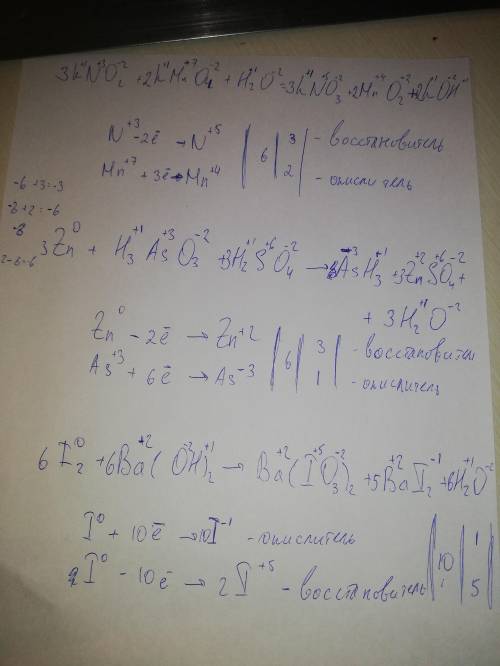 3K⁺¹N⁺³O₂⁻² + 2K⁺¹Mn⁺⁷O₄⁻² + H₂⁺¹O⁻² = 3K⁺¹N⁺⁵O₃⁻² + 2Mn⁺⁴O₂⁻² + 2K⁺¹O⁻²H⁺¹
N⁺³ - 2ē → N⁺⁵ | 6 | 3 | - восстановитель
Mn⁺⁷ + 3ē → Mn⁺⁴ | 2 | - окислитель
-6 +3 = -3
-8 +2 = -6
-8
2-8=-6
3Zn⁰ + H₃⁺¹As⁺³O₃⁻² + 3H₂⁺¹S⁺⁶O₄⁻² → As⁻³H₃⁺¹ + 3Zn⁺²S⁺⁶O₄⁻² +
+ 3H₂⁺¹O⁻²
Zn⁰ - 2ē → Zn+2 | 6 | 3 | - восстановител
As⁺³ + 6ē → As⁻³ | 1 | - окислитель
6I₂⁰ + 6Ba⁺²(O⁻²H⁺¹)₂ → Ba⁺²(I⁺⁵O₃⁻²)₂ + 5Ba⁺²I₂⁻¹ + 6H₂⁺¹O⁻²
I⁰ + 10ē → 10I⁻¹ - окислитель | 10 | 1
2I⁰ - 10ē → 2I⁺⁵ - восстановитель | 5